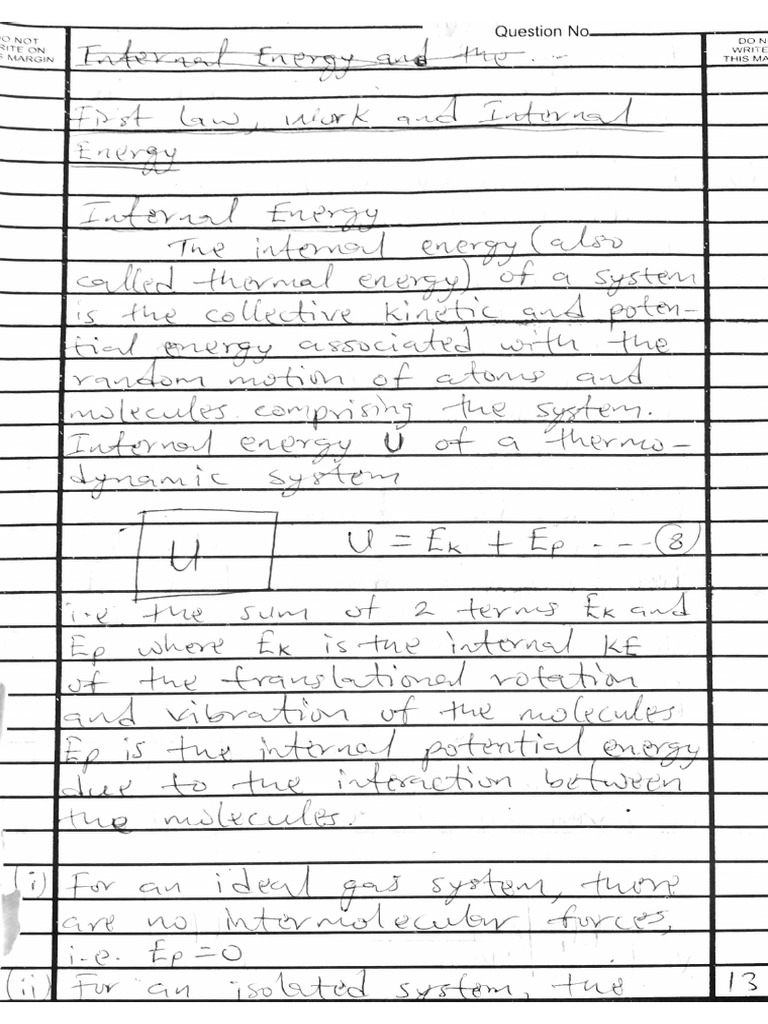 Question No
DO NOT
RITE ON
S MARGIN
DO N
WRITE
THIS MA
Internal Energy and the ...
First law, work and Internal
Energy
Internal Energy
The internal energy (also
called thermal energy) of a system
is the collective kinetic and poten-
tial energy associated with the
random motion of atoms and
molecules comprising the system.
Internal energy U of a thermo-
dynamic system
U
U = Ek + Ep ---- (8)
i.e the sum of 2 terms Ek and
Ep where Ek is the internal KE
of the translational rotation
and vibration of the molecules
Ep is the internal potential energy
due to the interaction between
the molecules.
(i) For an ideal gas system, there
are no intermolecular forces,
i.e. Ep = 0
(ii) For an isolated system, the
13